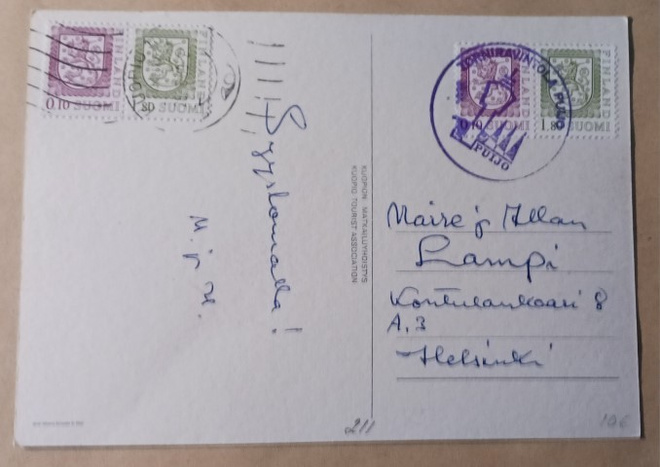 FINLAND
0,10 SUOMI
FINLAND
SUOMI
KUOPIO
Syyslomalla!
M. ja H.
KUOPION MATKAILUYHDISTYS
KUOPIO TOURIST ASSOCIATION
TORNIRAVINTOLA PUIJO
PUIJO
FINLAND
0,10 SUOMI
FINLAND
1,80 SUOMI
Maire ja Allan
Lampi
Kontulankaari 8
A. 3
Helsinki
211
196